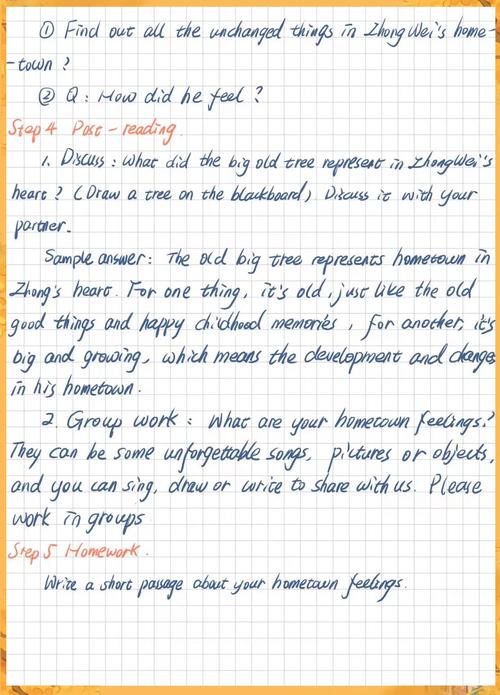 ① Find out all the unchanged things in Zhong Wei's home-
-town ?
② Q : How did he feel ?
Step 4 Post - reading
1. Discuss : What did the big old tree represent in ZhongWei's
heart ? (Draw a tree on the blackboard) Discuss it with your
partner.
Sample answer : The old big tree represents hometown in
Zhong's heart. For one thing, it's old, just like the old
good things and happy childhood memories , for another, it's
big and growing, which means the development and changes
in his hometown.
2. Group work : What are your hometown feelings?
They can be some unforgettable songs, pictures or objects,
and you can sing, draw or write to share with us. Please
work in groups
Step 5 Homework.
Write a short passage about your hometown feelings.